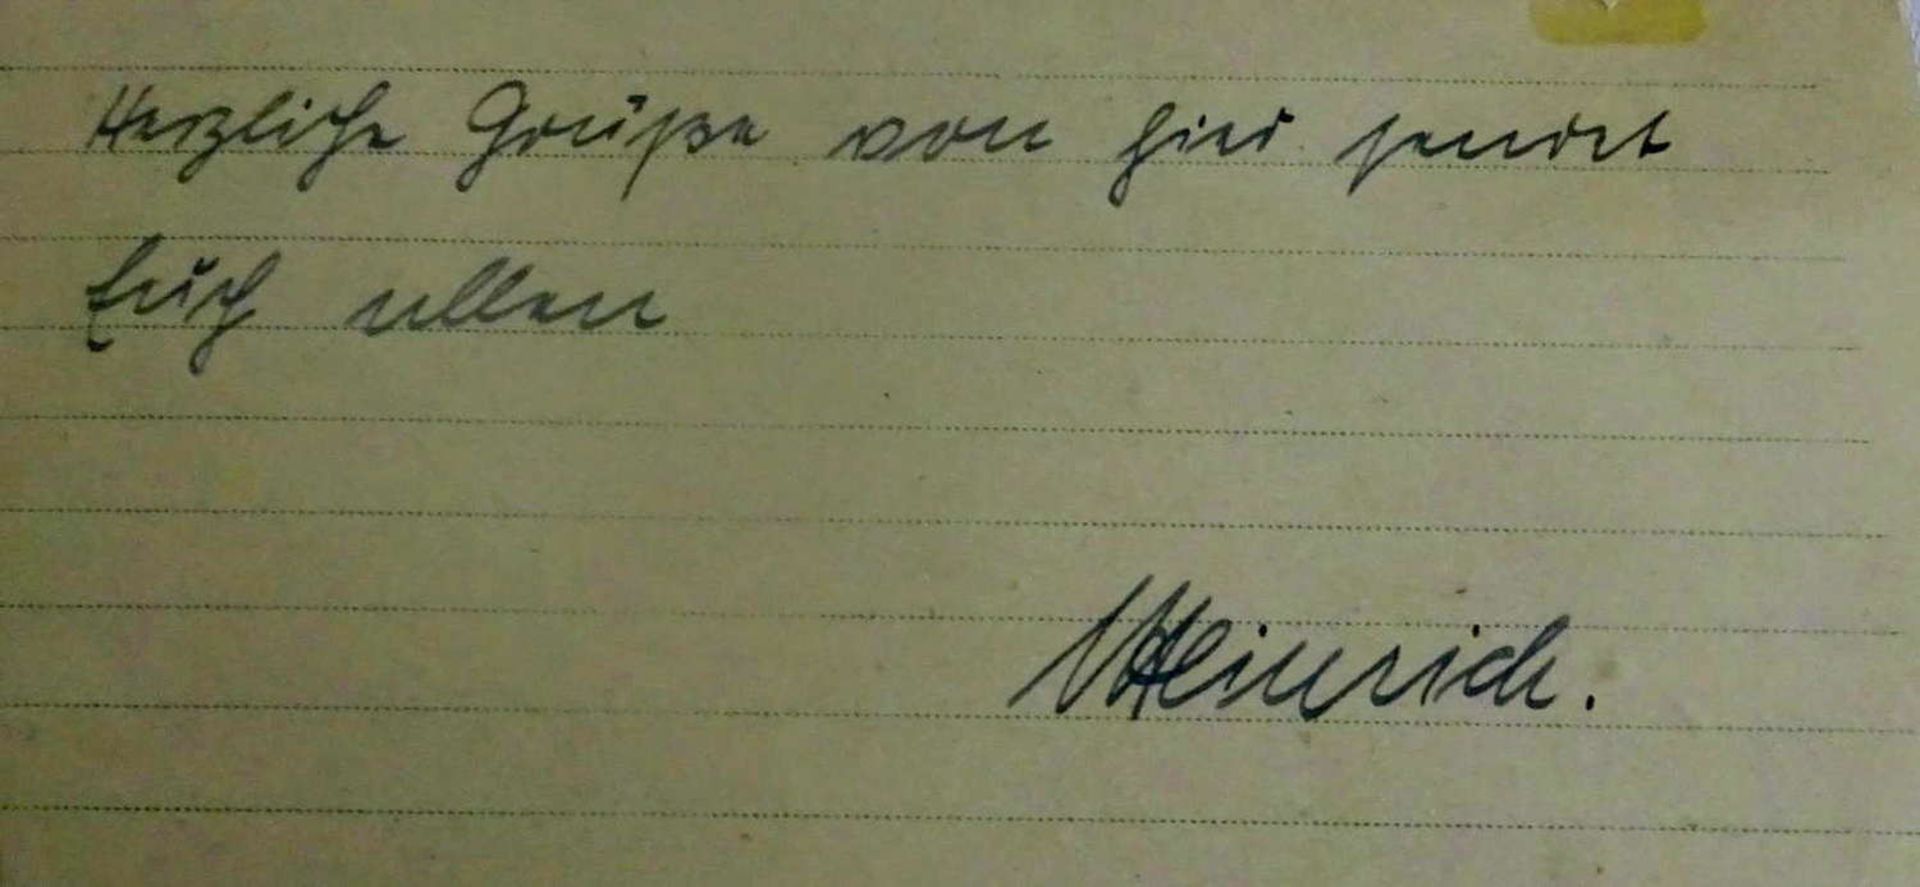 Herzliche Grüße von hier sendet
Euch allen
Heinrich.